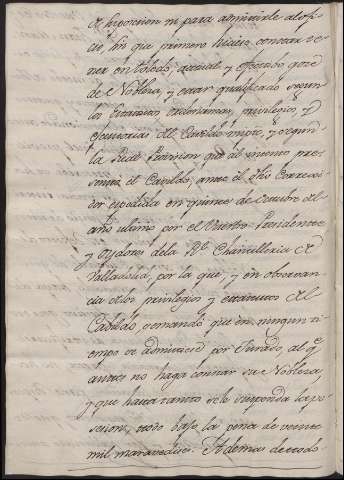 de posesion ni para admitirle al ofi-
cio, sin que primero hiciese constar te-
ner en Toledo, actual, y efectivo goze
de Nobleza, y estar qualificado segun
los Estatutos ordenanzas, privilegios, y
Executorias del Cavildo mismo, y segun
la Real Provision que al intento pre-
sentó el Cavildo, ante el dho Correxi-
dor expedida en quince de Octubre del
año ultimo por el Vuestro Presidente
y oydores de la Rl. Chancilleria de
Valladolid, por la que, y en observan-
cia de los privilegios y estatutos del
Cabildo, semandó que en ningun ti-
empo se admitiese por Jurado, al qe.
antes no haga constar su Nobleza,
y que hasta tanto sele suspenda la po-
sesion, todo bajo la pena de veinte
mil maravedises. Y ademas de todo